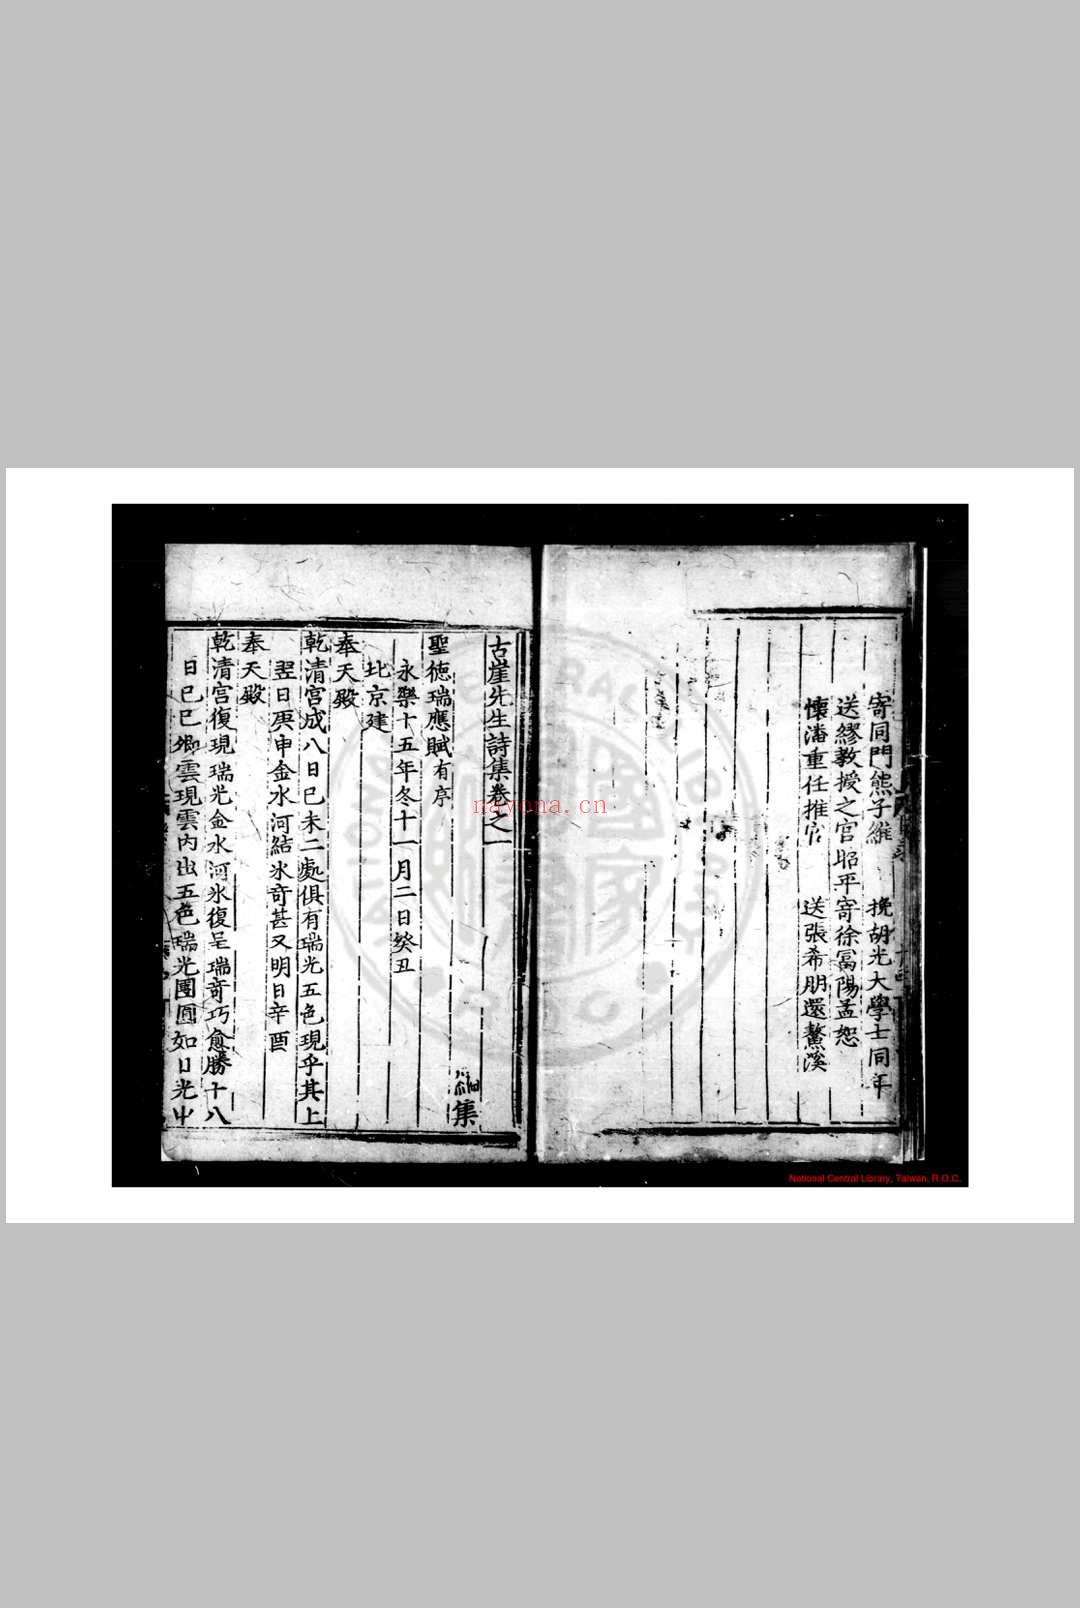 寄同門熊子維 挽胡光大學士同年
送繆教授之官昭平 寄徐冨陽孟恕
懐潘重任推官 送張希朋還鰲溪
古崖先生詩集卷之一
集
聖德瑞應賦有序
永樂十五年冬十一月二日癸丑
北京建
奉天殿
乾清宫成八日巳未二處俱有瑞光五色現乎其上
翌日庚申金水河結氷竒甚又明日辛酉
奉天殿
乾清宫復現瑞光金水河氷復呈瑞竒巧愈勝十八
日巳巳卿雲現雲内出五色瑞光團圓如日光中
nayona.cn
National Central Library, Taiwan, R.O.C.